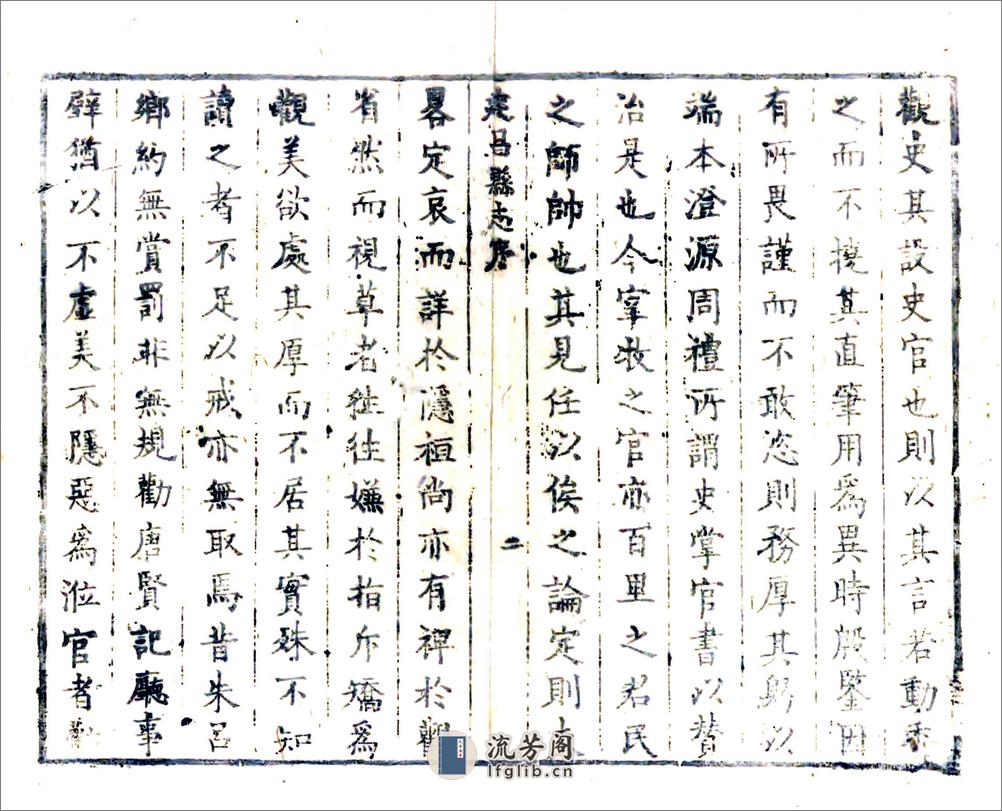 觀史其設史官也則以其言若動垂
之而不撓其直筆用為異時殷鑒因
有所畏謹而不敢恣則務厚其躬以
端本澄源周禮所謂史掌官書以贊
治是也今宰牧之官亦百里之君民
之師帥也其見任以俟之論定則
建昌縣志序
二
畧定哀而詳於隱桓尚亦有裨於觀
省然而視草者徃徃嫌於指斥矯為
觀美欲處其厚而不居其實殊不知
讀之者不足以戒亦無取焉昔朱呂
鄉約無賞罰非無規勸唐賢記廳事
壁猶以不虛美不隱惡為涖官者勸
流芳阁
lfglib.cn